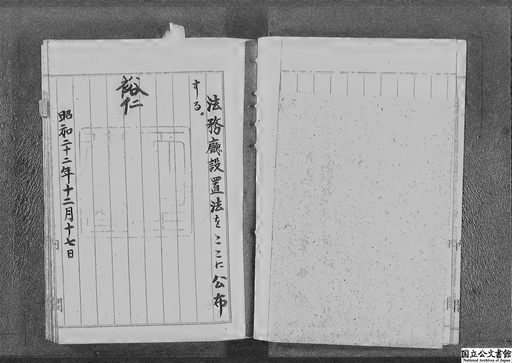 法務廳設置法をここに公布
する。
裕仁
昭和二十二年十二月十七日
国立公文書館
National Archives of Japan